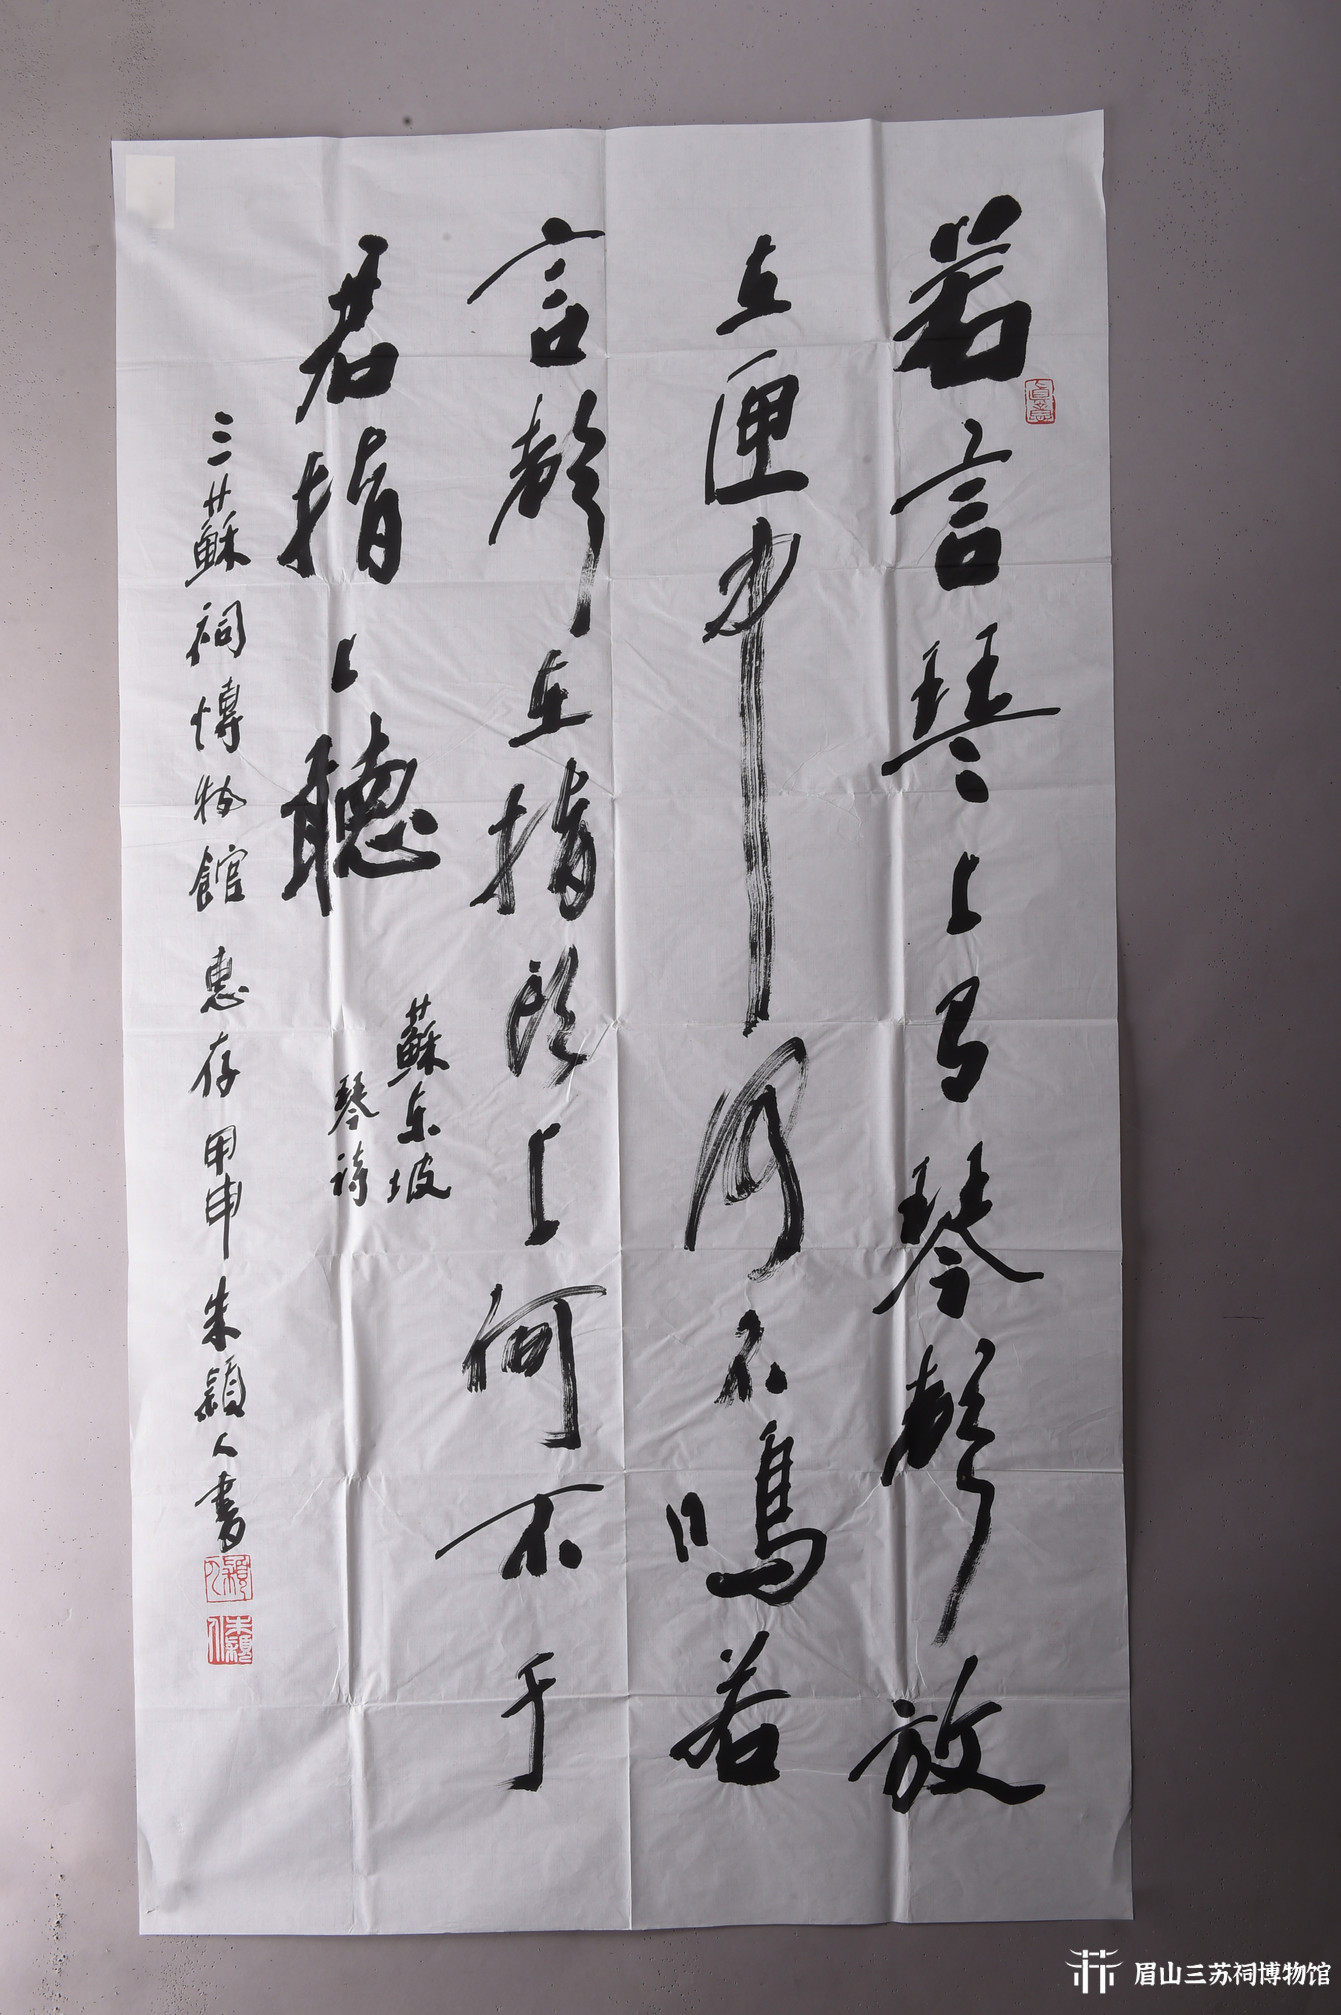 若言琴上有琴聲放
在匣中何不鳴若
言聲在指頭上何不于
君指上聽
蘇东坡
琴诗
三蘇祠博物館惠存甲申朱穎人書
眉山三苏祠博物馆